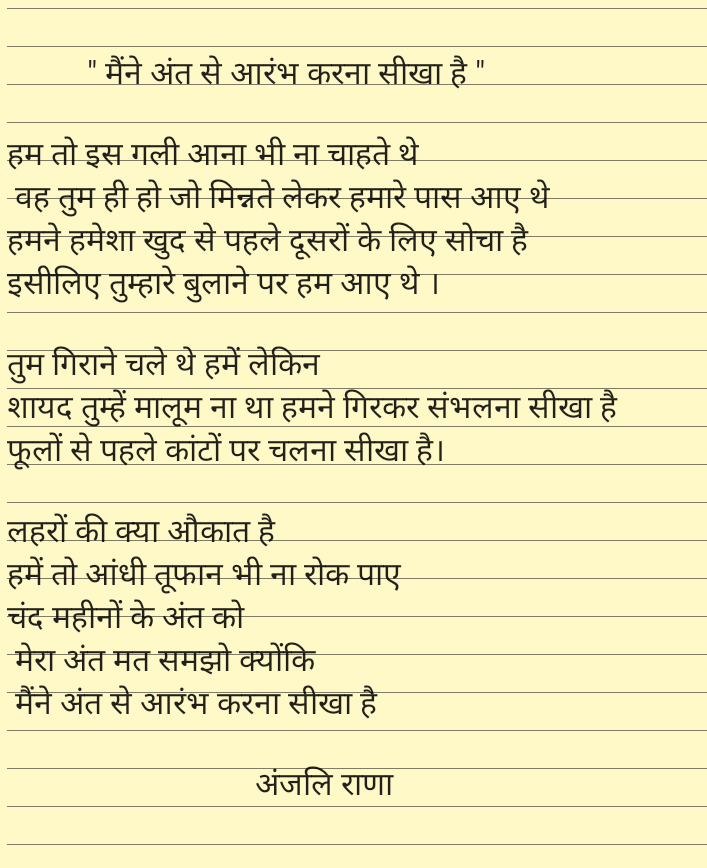 " मैंने अंत से आरंभ करना सीखा है "
हम तो इस गली आना भी ना चाहते थे
वह तुम ही हो जो मिन्नते लेकर हमारे पास आए थे
हमने हमेशा खुद से पहले दूसरों के लिए सोचा है
इसीलिए तुम्हारे बुलाने पर हम आए थे ।
तुम गिराने चले थे हमें लेकिन
शायद तुम्हें मालूम ना था हमने गिरकर संभलना सीखा है
फूलों से पहले कांटों पर चलना सीखा है।
लहरों की क्या औकात है
हमें तो आंधी तूफान भी ना रोक पाए
चंद महीनों के अंत को
मेरा अंत मत समझो क्योंकि
मैंने अंत से आरंभ करना सीखा है
अंजलि राणा